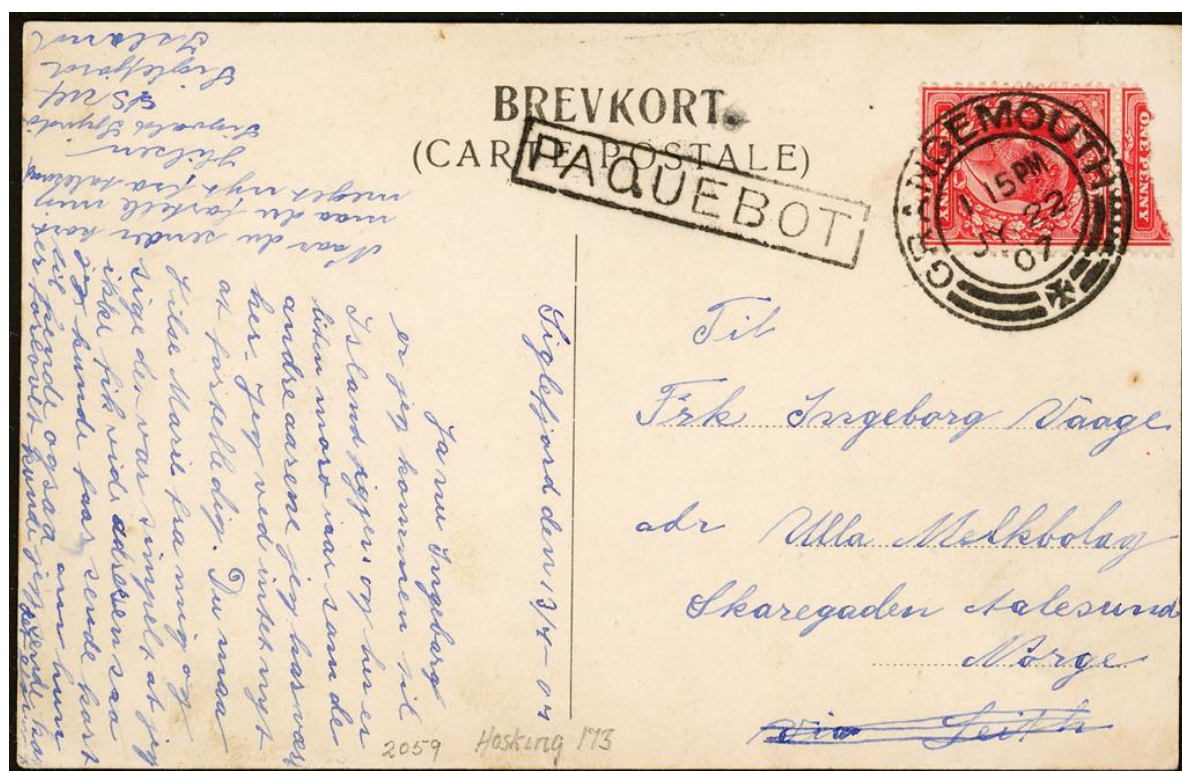 BREVKORT.
(CARTE POSTALE)
PAQUEBOT
GRANGEMOUTH
1 15 PM
JY 22
07
ONE PENNY
Til
Frk Ingeborg Vaage
adr Ulla Melkbolag
Skaregaden Aalesund
Norge
via Leith
Siglefjord den 13/7-07
Ja nu Ingeborg
er jeg kommen til
Island igjen og her er
liten moro iaar som de
andre aarene jeg har vær
her. Jeg ved intet nyt
at fortelle dig. Du maa
hilse Marie fra mig og
sige det var simpelt at jeg
ikke fik vide adresen saa
jeg kunde faa sende kort
til hende ogsaa om hun
er forlovet kunde jeg sende
Naar du sender kort
maa du fortelle mig
meget nyt fra Aalesund
Hilsen
Sigvald
SS Ulf
Siglefjord
Island
2059 Hosking 173